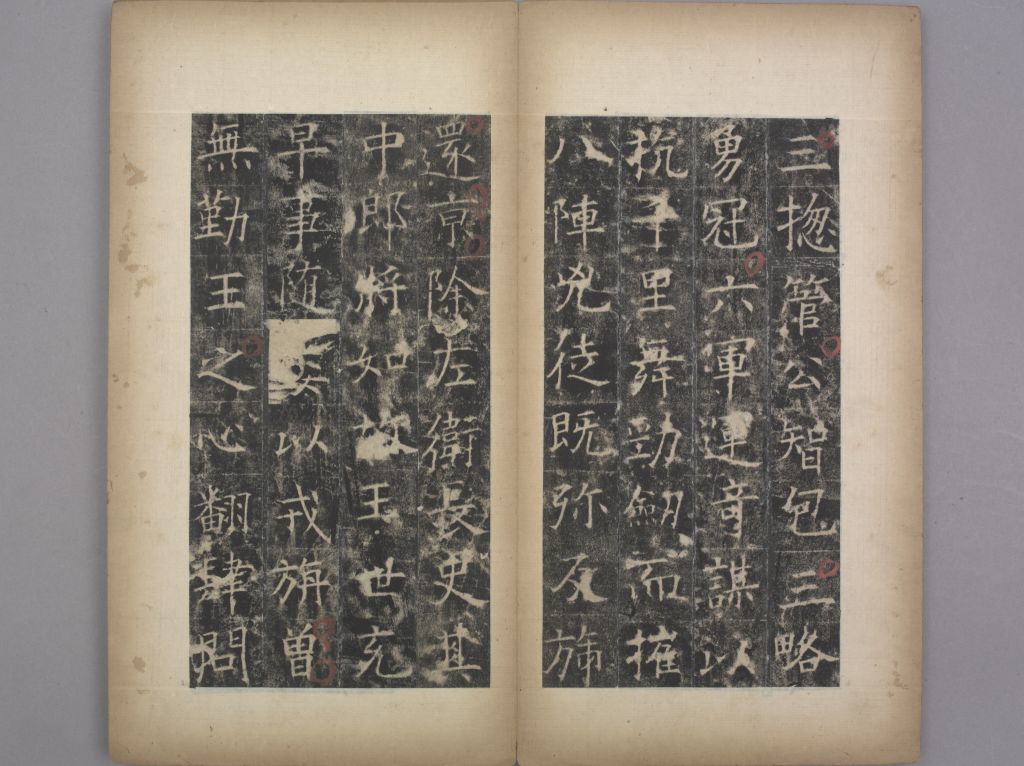 三揔管公智包三略
勇冠六軍運竒謀以
抗千里舞勁劔而摧
八陣兇徒既弥反斾
還亰除左衛長史其
中郎將如故王世充
早事随委以戎旃曽
無勤王之心翻肆問